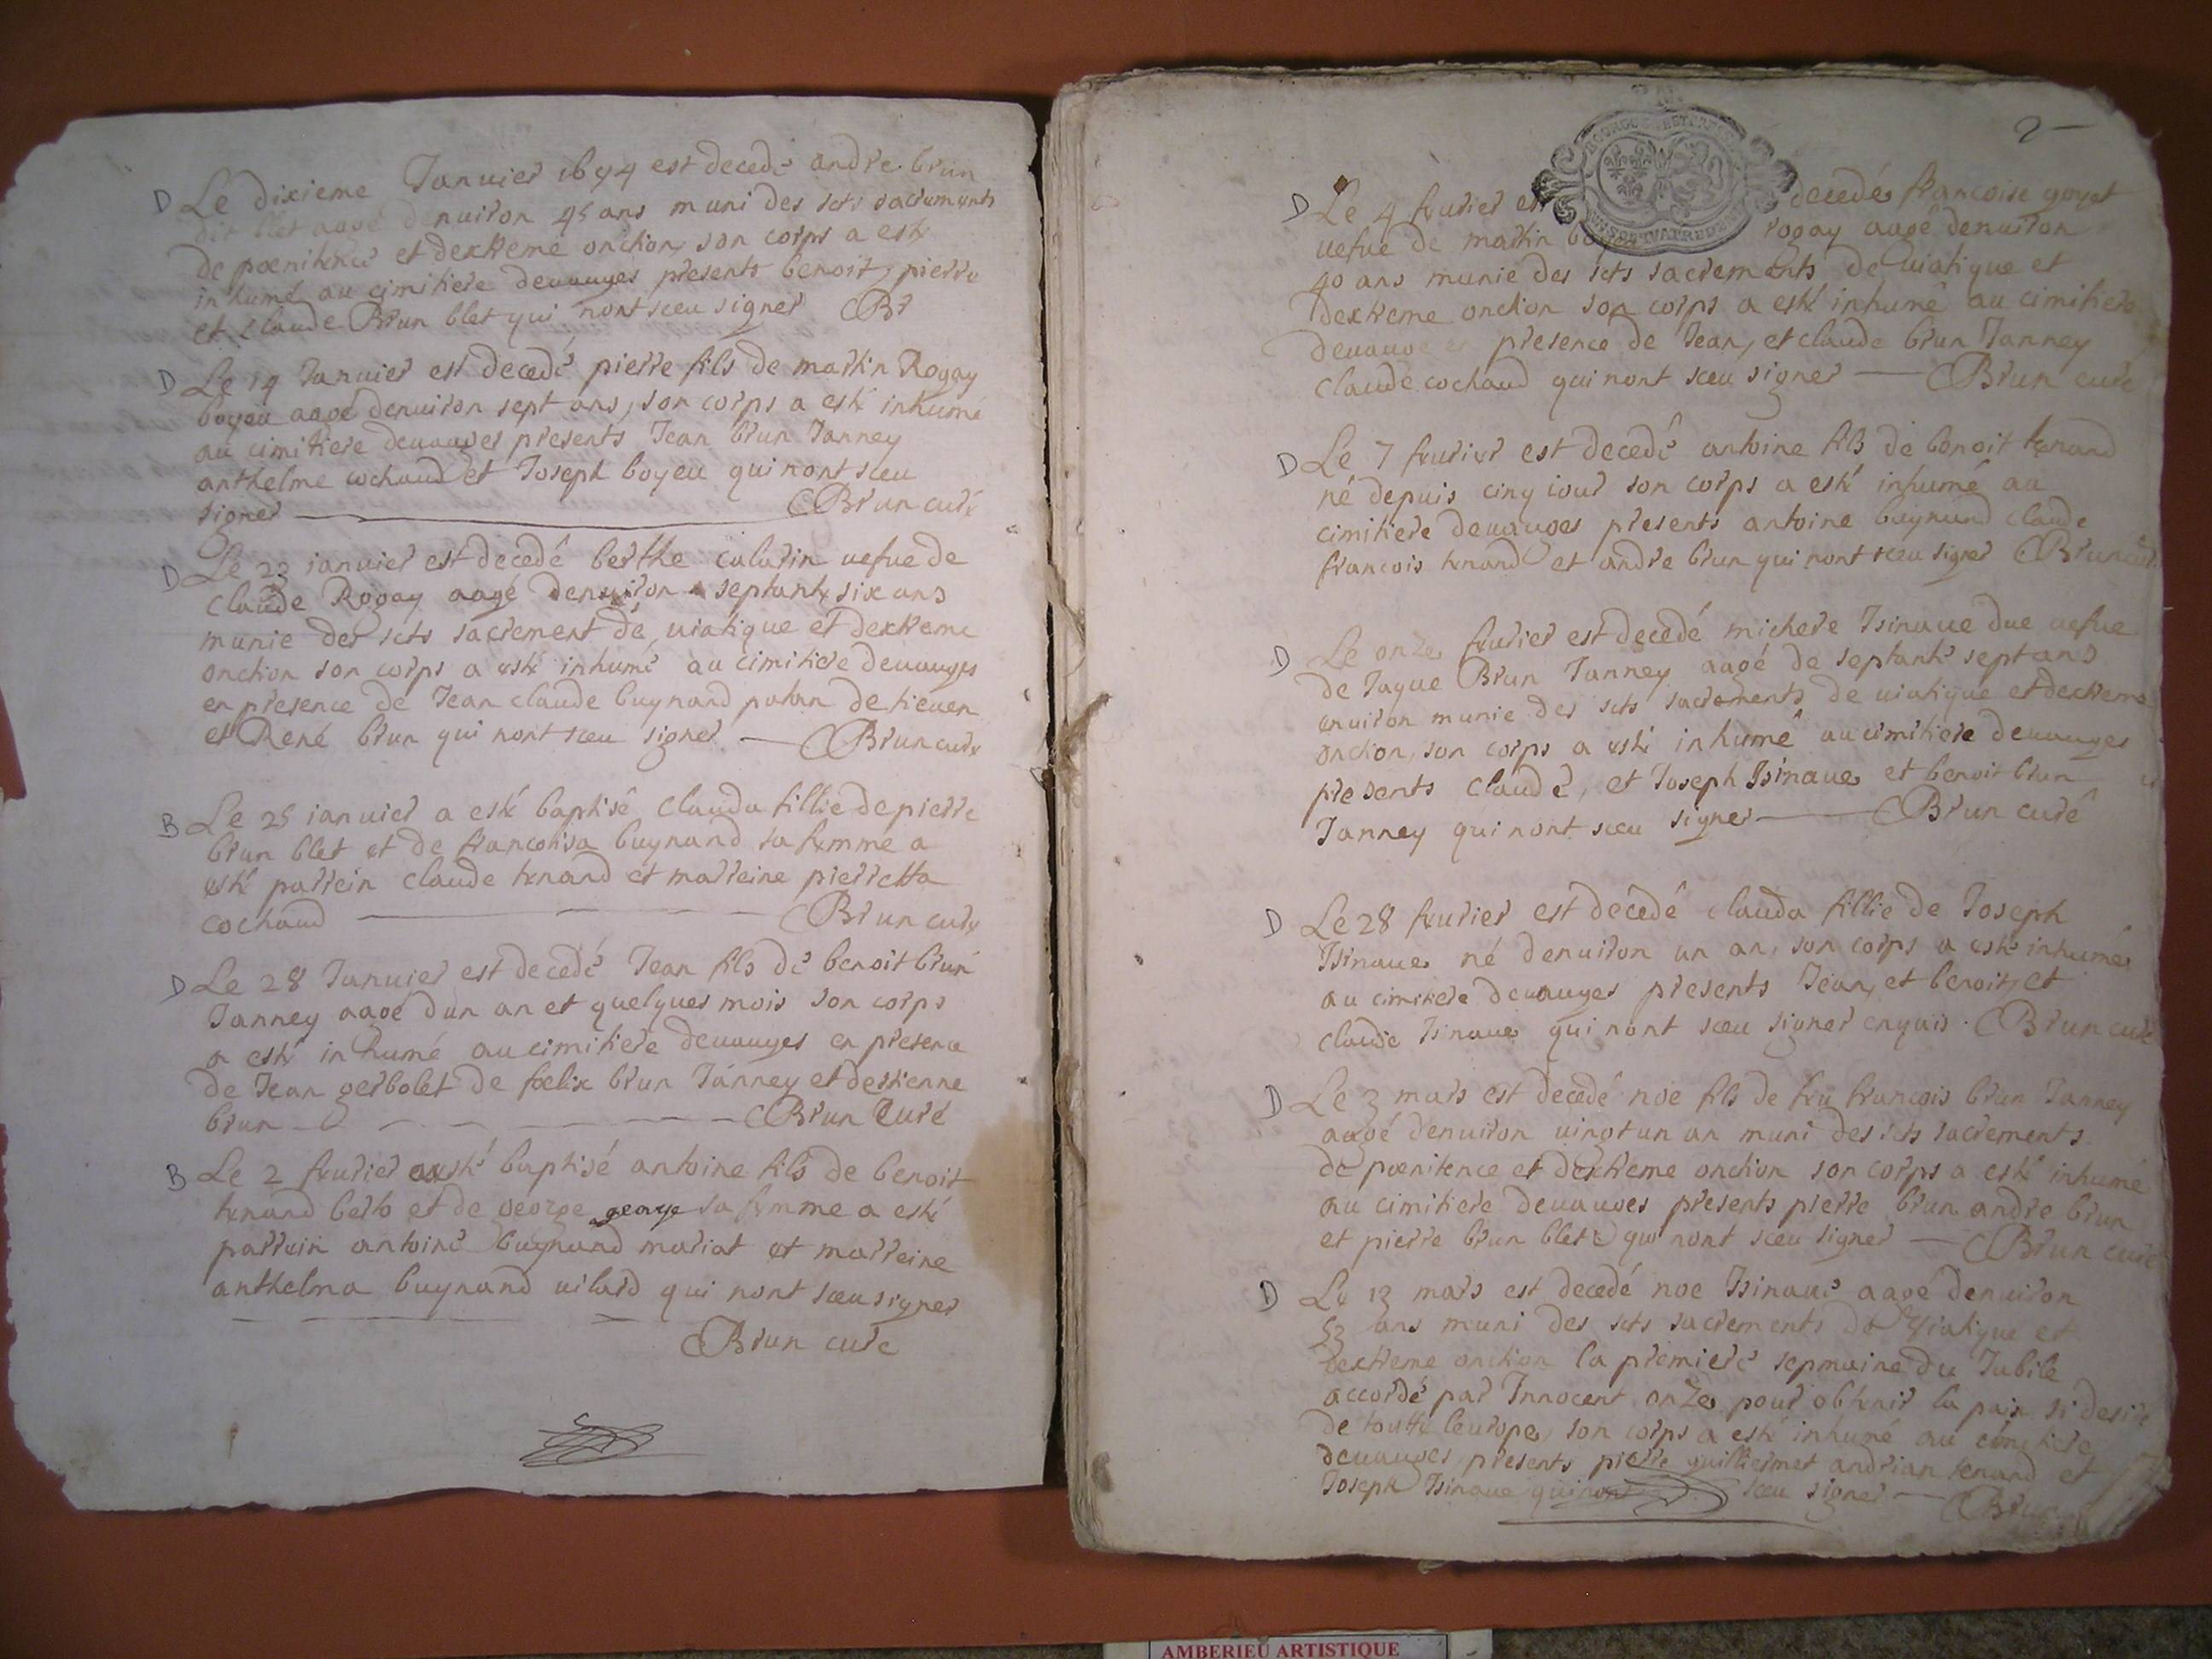 D Le dixieme Januier 1694 est decedé andre brun
dit blet aagé denuiron 45 ans muni des scts sacrements
de poenitence et dextreme onction son corps a esté
inhumé au cimitiere deuauges presents benoit, pierre
et claude Brun blet qui nont sceu signer Br
D Le 14 Januier est decedé pierre fils de martin Rogay
boyeu aagé denuiron sept ans, son corps a esté inhumé
au cimitiere deuauges presents Jean brun Janney
anthelme cochaud et Joseph boyeu qui nont sceu
signer Brun curé
D Le 23 ianuier est decedé berthe calatin uefue de
claude Rogay aagé denuiron septante six ans
munie des scts sacrement de uiatique et dextreme
onction son corps a esté inhumé au cimitiere deuauges
en presence de Jean claude buynand de tieuen
et René brun qui nont sceu signer Brun curé
B Le 25 ianuier a esté baptisé clauda fillie de pierre
brun blet et de francoisa buynand sa femme a
esté parrein claude tenand et marreine pierretta
cochaud Brun curé
D Le 28 Januier est decedé Jean fils de benoit brun
Janney aagé dun an et quelques mois son corps
a esté inhumé au cimitiere deuauges en presence
de Jean gerbolet de foelix brun Janney et destienne
brun Brun Curé
B Le 2 feurier a esté baptisé antoine fils de benoit
tenand berto et de george george sa femme a esté
parrein antoine buynand mariat et marreine
anthelma buynand uilard qui nont sceu signer
Brun curé
2
D Le 4 feurier est decedé francoise goyet
uefue de martin rogay aagé denuiron
40 ans munie des scts sacrements de uiatique et
dextreme onction son corps a esté inhumé au cimitiere
deuauge en presence de Jean, et claude brun Janney
claude cochaud qui nont sceu signer Brun curé
D Le 7 feurier est decedé antoine fils de benoit tenand
né depuis cinq iour son corps a esté inhumé au
cimitiere deuauges presents antoine buynand claude
francois tenand et andre brun qui nont sceu signer Brun curé
D Le onze feurier est decedé michere Isinaue due uefue
de Jaque Brun Janney aagé de septante sept ans
enuiron munie des scts sacrements de uiatique et dextreme
onction, son corps a esté inhumé au cimitiere deuauges
presents claude, et Joseph Isinaue et benoit brun
Janney qui nont sceu signer Brun curé
D Le 28 feurier est decedé clauda fillie de Joseph
Isinaue né denuiron un an, son corps a esté inhumé
au cimitiere deuauges presents Jean, et benoit, et
claude Isinaue qui nont sceu signer enquis. Brun curé
D Le 3 mars est decedé noe fils de feu francois brun Janney
aagé denuiron uingt un an muni des scts sacrements
de poenitence et dextreme onction son corps a esté inhumé
au cimitiere deuauges presents pierre brun andre brun
et pierre brun blet qui nont sceu signer Brun curé
D Le 13 mars est decedé noe Isinaue aagé denuiron
53 ans muni des scts sacrements de Viatique et
dextreme onction la premiere sepmaine du Jubile
accordé par Innocent onze pour obtenir la paix si desiré
de toutte leurope, son corps a esté inhumé au cimitiere
deuauges, presents pierre guilliermet andrian tenand et
Joseph Isinaue qui nont sceu signer Brun
AMBERIEU ARTISTIQUE